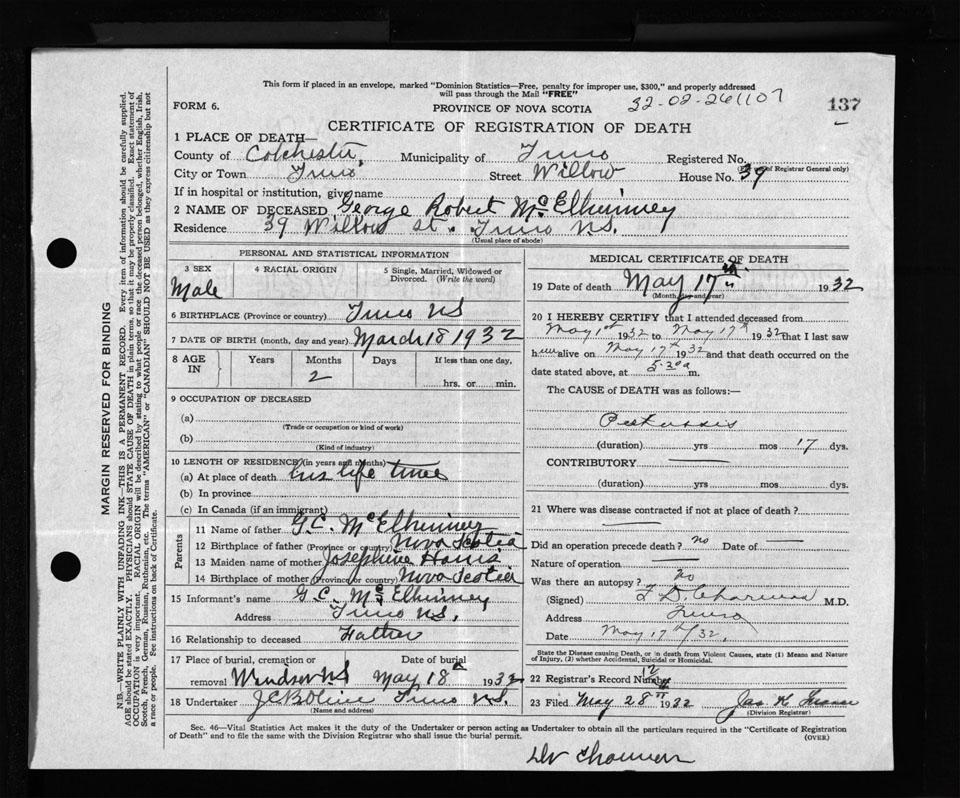 This form if placed in an envelope, marked "Dominion Statistics—Free, penalty for improper use, $300," and properly addressed
will pass through the Mail "FREE"
FORM 6.
PROVINCE OF NOVA SCOTIA
32-02-261107
137
CERTIFICATE OF REGISTRATION OF DEATH
1 PLACE OF DEATH—
County of Colchester, Municipality of Truro Registered No.
(For use of Registrar General only)
City or Town Truro Street Willow House No. 39
If in hospital or institution, give name
2 NAME OF DECEASED George Robert McElhinney
Residence 39 Willow St. Truro N.S.
(Usual place of abode)
PERSONAL AND STATISTICAL INFORMATION
3 SEX Male
4 RACIAL ORIGIN
5 Single, Married, Widowed or Divorced. (Write the word)
6 BIRTHPLACE (Province or country) Truro NS
7 DATE OF BIRTH (month, day and year) March 18 1932
8 AGE IN Years Months 2 Days If less than one day, hrs. or min.
9 OCCUPATION OF DECEASED
(a)
(Trade or occupation or kind of work)
(b)
(Kind of industry)
10 LENGTH OF RESIDENCE (in years and months)
(a) At place of death his life time
(b) In province
(c) In Canada (if an immigrant)
Parents
11 Name of father G.C. McElhinney
12 Birthplace of father (Province or country) Nova Scotia
13 Maiden name of mother Josephine Harris
14 Birthplace of mother (Province or country) Nova Scotia
15 Informant's name G C. McElhinney
Address Truro NS.
16 Relationship to deceased Father
17 Place of burial, cremation or removal Windsor NS
Date of burial May 18th 1932
18 Undertaker Truro NS.
(Name and address)
MEDICAL CERTIFICATE OF DEATH
19 Date of death May 17th 1932
(Month, day and year)
20 I HEREBY CERTIFY that I attended deceased from
May 1st 1932 to May 17th 1932 that I last saw
him alive on May 17th 1932 and that death occurred on the
date stated above, at 5.30 a m.
The CAUSE of DEATH was as follows:—
Pertussis
(duration) yrs mos 17 dys.
CONTRIBUTORY
(duration) yrs mos dys.
21 Where was disease contracted if not at place of death?
Did an operation precede death? no Date of —
Nature of operation —
Was there an autopsy? no
(Signed) M.D.
Address Truro
Date May 17th/32.
State the Disease causing Death, or in Death from Violent Causes, state (1) Means and Nature
of Injury, (2) whether Accidental, Suicidal or Homicidal.
22 Registrar's Record Number
23 Filed May 28th 1932
(Division Registrar)
Sec. 46—Vital Statistics Act makes it the duty of the Undertaker or person acting as Undertaker to obtain all the particulars required in the "Certificate of Registration
of Death" and to file the same with the Division Registrar who shall issue the burial permit.
(OVER)
MARGIN RESERVED FOR BINDING
N.B.—WRITE PLAINLY WITH UNFADING INK—THIS IS A PERMANENT RECORD. Every item of information should be carefully supplied.
AGE should be stated EXACTLY. PHYSICIANS should STATE CAUSE OF DEATH in plain terms, so that it may be properly classified. Exact statement of
OCCUPATION is very important. RACIAL ORIGIN will be described by stating to what people or race the deceased person belonged, whether English, Irish,
Scotch, French, German, Russian, Ruthenian, etc. The terms "AMERICAN" or "CANADIAN" SHOULD NOT BE USED as they express citizenship but not
a race or people. See instructions on back of Certificate.